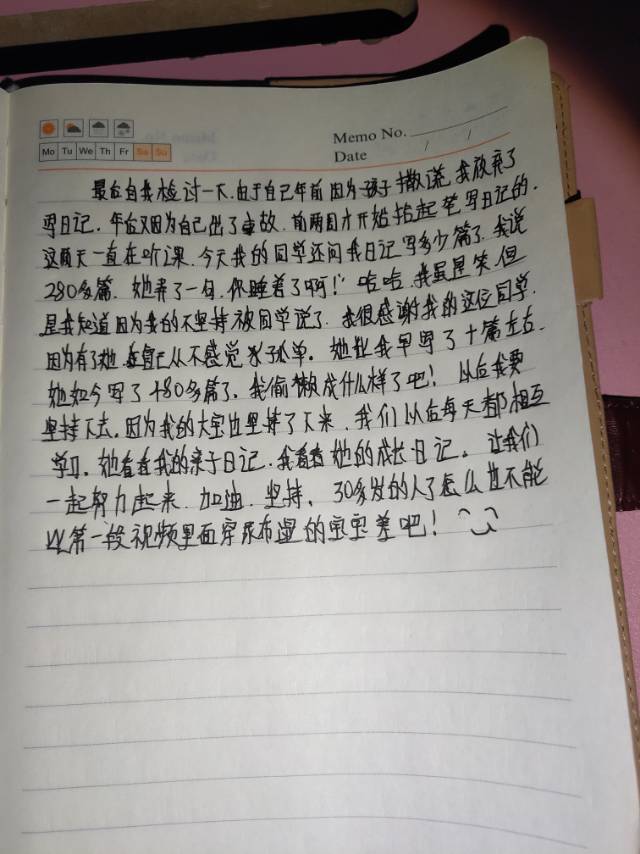 Memo No.
Mo Tu We Th Fr Sa Su
Date / /
最后自我检讨一下.由于自己年前因为孩子撒谎我放弃了
写日记.年后又因为自己出了事故.前两周才开始拾起笔写日记的.
这两天一直在听课.今天我的同学还问我日记写多少篇了.我说
280多篇.她弄了一句.你睡着了啊!哈哈.我虽是笑.但
是我知道因为我的不坚持被同学说了.我很感谢我的这位同学.
因为有了她.自己从不感觉孤单.她比我早写了十篇左右.
她如今写了480多篇了.我偷懒成什么样了吧!以后我要
坚持下去.因为我的大宝也坚持了下来.我们以后每天都相互
学习.她看看我的亲子日记.我看看她的成长日记。让我们
一起努力起来.加油.坚持.30多岁的人了怎么也不能
比第一段视频里面穿尿布湿的宝宝差吧!